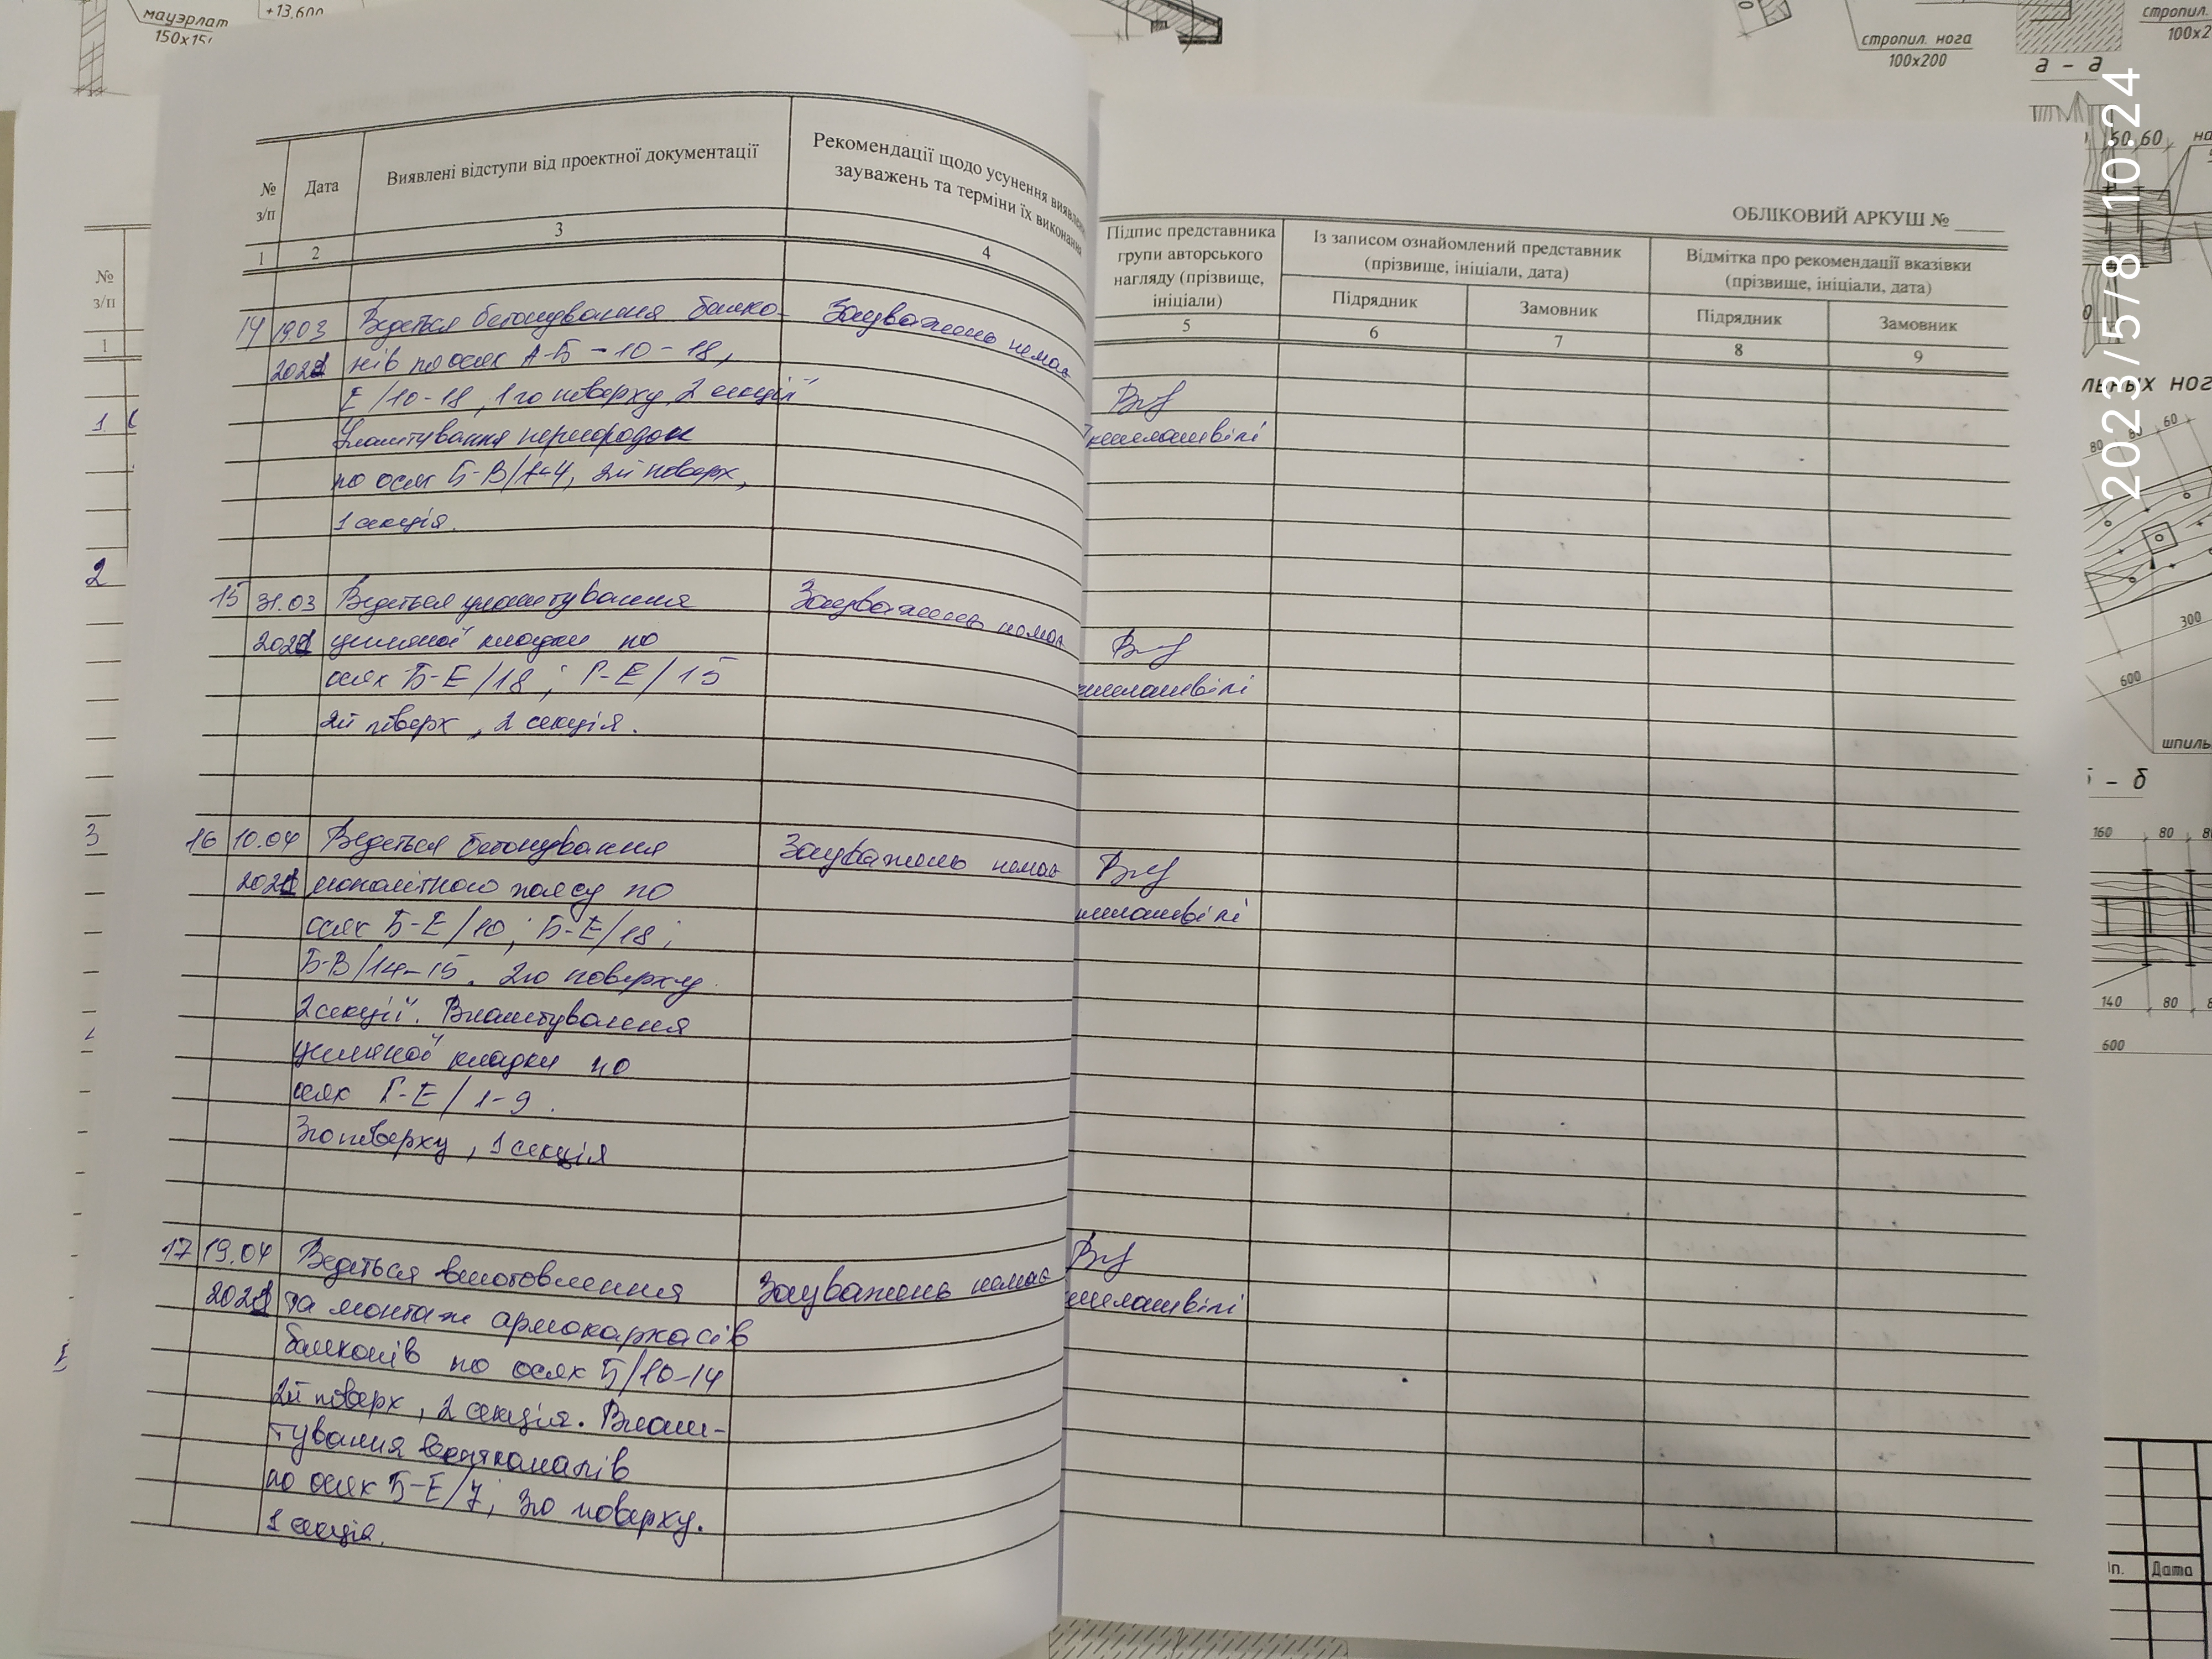 мауэрлат
+13.600
стропил. нога
100х200
стропил.
а - а
50 60
2023/5/8 10:24
№
з/п
1
1
2
3
№
з/п
Дата
Виявлені відступи від проектної документації
Рекомендації щодо усунення
зауважень та терміни їх виконання
1
2
3
4
14
19.03
Ведеться бетонування балко-
Зауважень немає
2021
нів по осях А-Б - 10-18,
Е/10-18, 1го поверху, 2 секції
Улаштування перегородок
по осях Б-В/1-4, 2й поверх,
1 секція.
15
31.03
Ведеться улаштування
Зауважень немає
2021
цегляної кладки по
осях Б-Е/18; Г-Е/15
2й поверх, 2 секція.
16
10.04
Ведеться бетонування
Зауважень немає
2021
монолітного поясу по
осях Б-Е/10; Б-Е/18;
Б-В/14-15. 2го поверху
2 секції. Влаштування
цегляної кладки по
осях Г-Е/1-9.
3го поверху, 1 секція
17
19.04
Ведеться виготовлення
Зауважень немає
2021
та монтаж армокаркасів
балконів по осях Б/10-14
2й поверх, 2 секція. Влаш-
тування вентканалів
по осях Б-Е/7; 3го поверху.
1 секція.
ОБЛІКОВИЙ АРКУШ №
Підпис представника
групи авторського
нагляду (прізвище,
ініціали)
Із записом ознайомлений представник
(прізвище, ініціали, дата)
Відмітка про рекомендації вказівки
(прізвище, ініціали, дата)
Підрядник
Замовник
Підрядник
Замовник
5
6
7
8
9
80
80
60
300
600
шпиль
- б
160
80
140
80
600
Дата